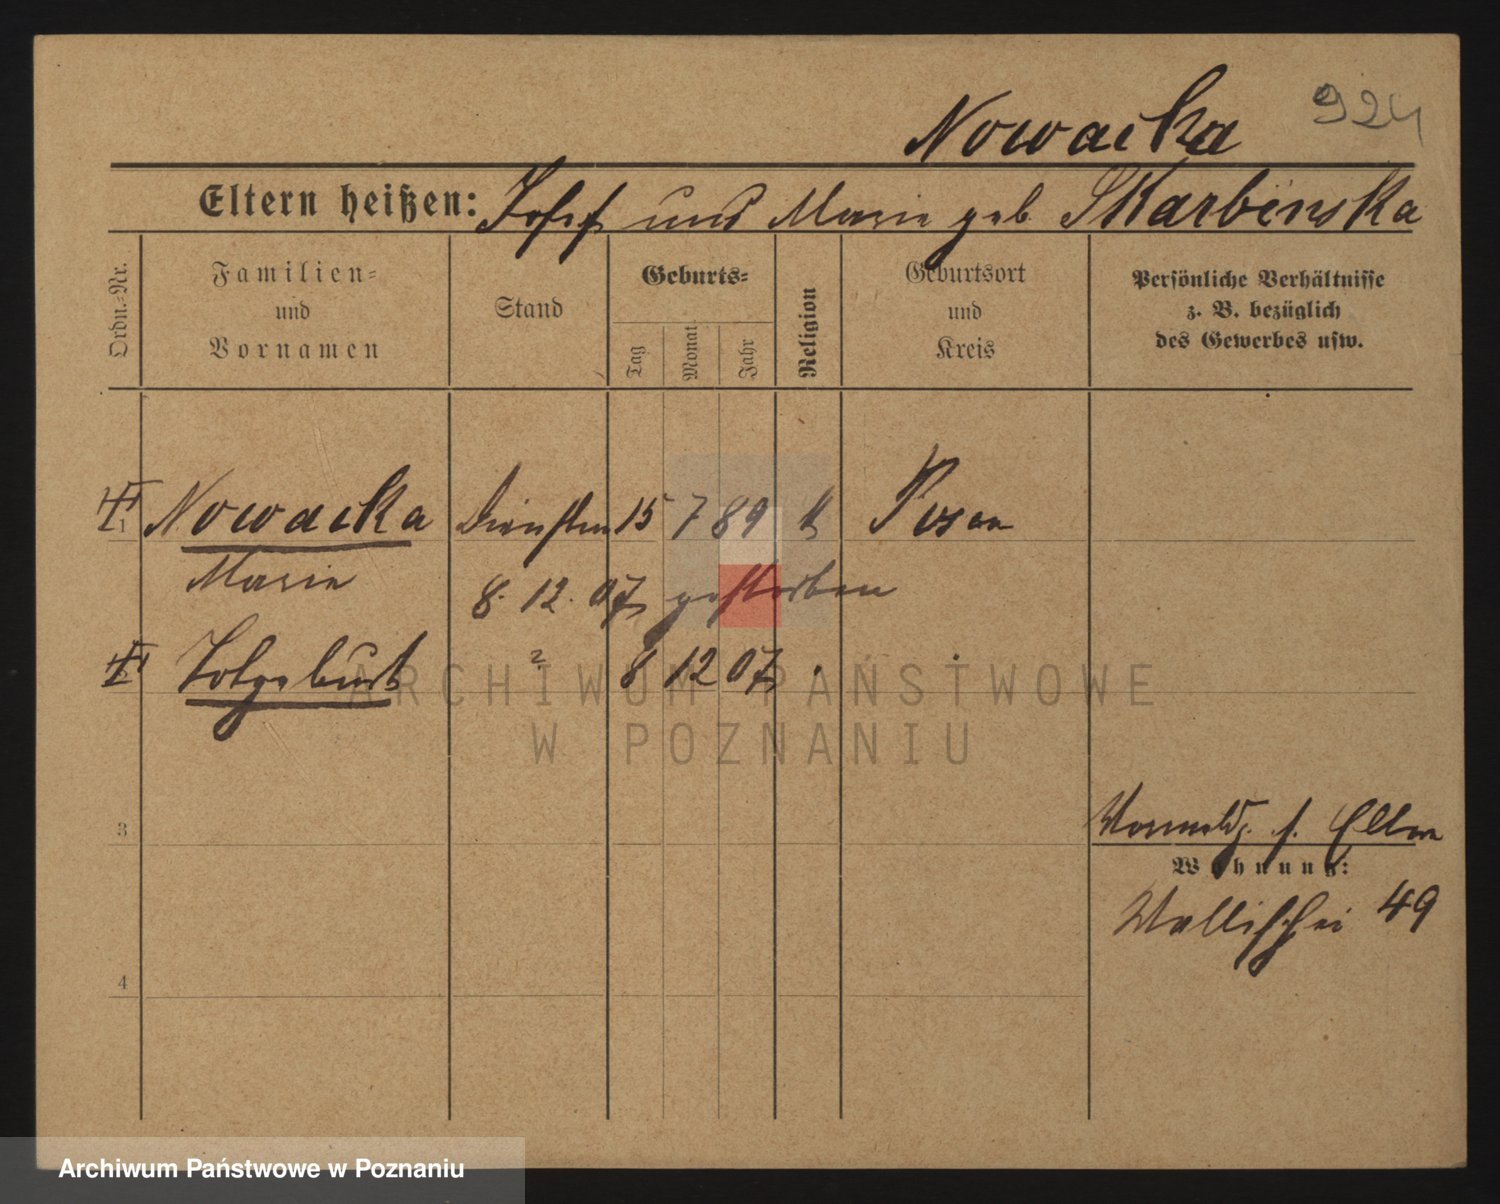 Nowacka 924
Eltern heißen: Josef und Marie geb. Skarbinska
Ordn.-Nr.
Familien-
und
Vornamen
Stand
Geburts-
Tag
Monat
Jahr
Religion
Geburtsort
und
Kreis
Persönliche Verhältnisse
z. B. bezüglich
des Gewerbes usw.
1 Nowacka 15 7 89 k Posen
Marie 8. 12. 07 gestorben
Totgeburt ? 8 12 07
ARCHIWUM PAŃSTWOWE
W POZNANIU
3
Eltern
Wohnung:
Wallischei 49
4
Archiwum Państwowe w Poznaniu